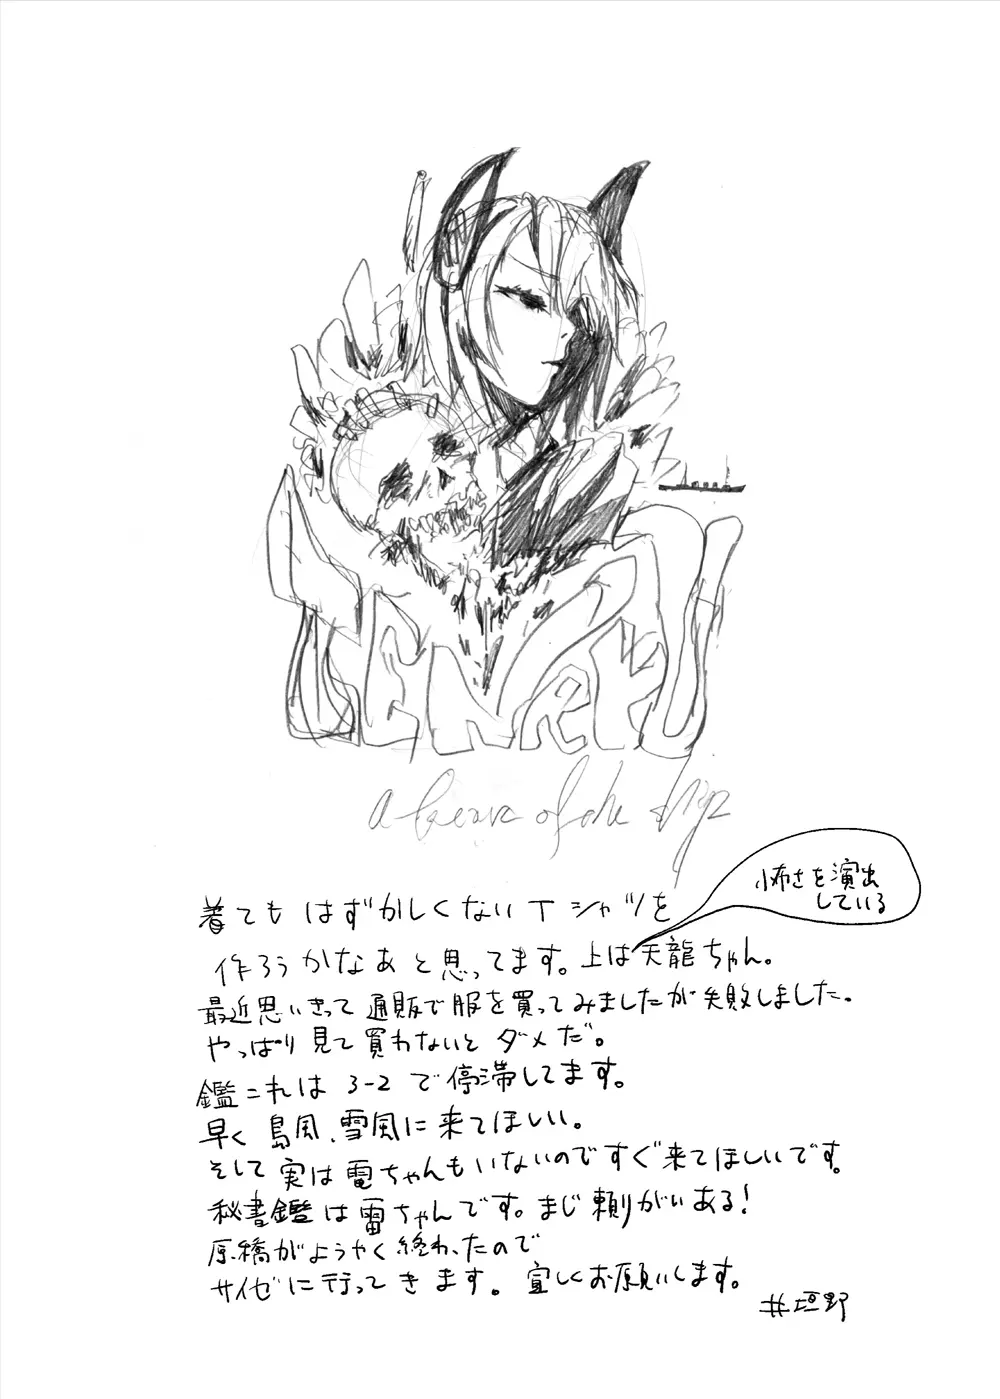 TENRYU
怖さを演出
している
着てもはずかしくないTシャツを
作ろうかなぁと思ってます。上は天龍ちゃん。
最近思いきって通販で服を買ってみましたが失敗しました。
やっぱり見て買わないとダメだ。
鑑これは3-2で停滞してます。
早く島風、雪風に来てほしい。
そして実は電ちゃんもいないのですぐ来てほしいです。
秘書鑑は雷ちゃんです。まじ頼りがいある!
原稿がようやく終わったので
サイゼに行ってきます。宜しくお願いします。
井垣野